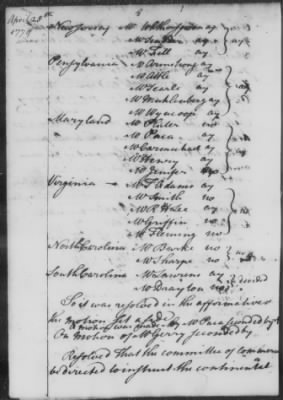 April 28th
1779
New Jersey Mr Witherspoon ay
Mr Scudder ay } ay
Mr Fell ay
Pensylvania Mr Armstrong ay
Mr Atlee
Mr Searle ay
Mr Muhlenberg ay
Mr Wyncoop ay
Maryland Mr Plater no
Mr Paca ay
Mr Carmichael ay
Mr Henry ay
Mr Jenifer
Virginia Mr T Adams ay
Mr Smith no
Mr R H Lee ay
Mr Griffin no
Mr Fleming no
North Carolina Mr Burke no
Mr Sharpe no
South Carolina Mr Laurens ay
Mr Drayton no } divided
So it was resolved in the affirmative
a motion was made by Mr Paca seconded by
On motion of Mr Gerry seconded by
Resolved That the committee of commerce
be directed to instruct the continental